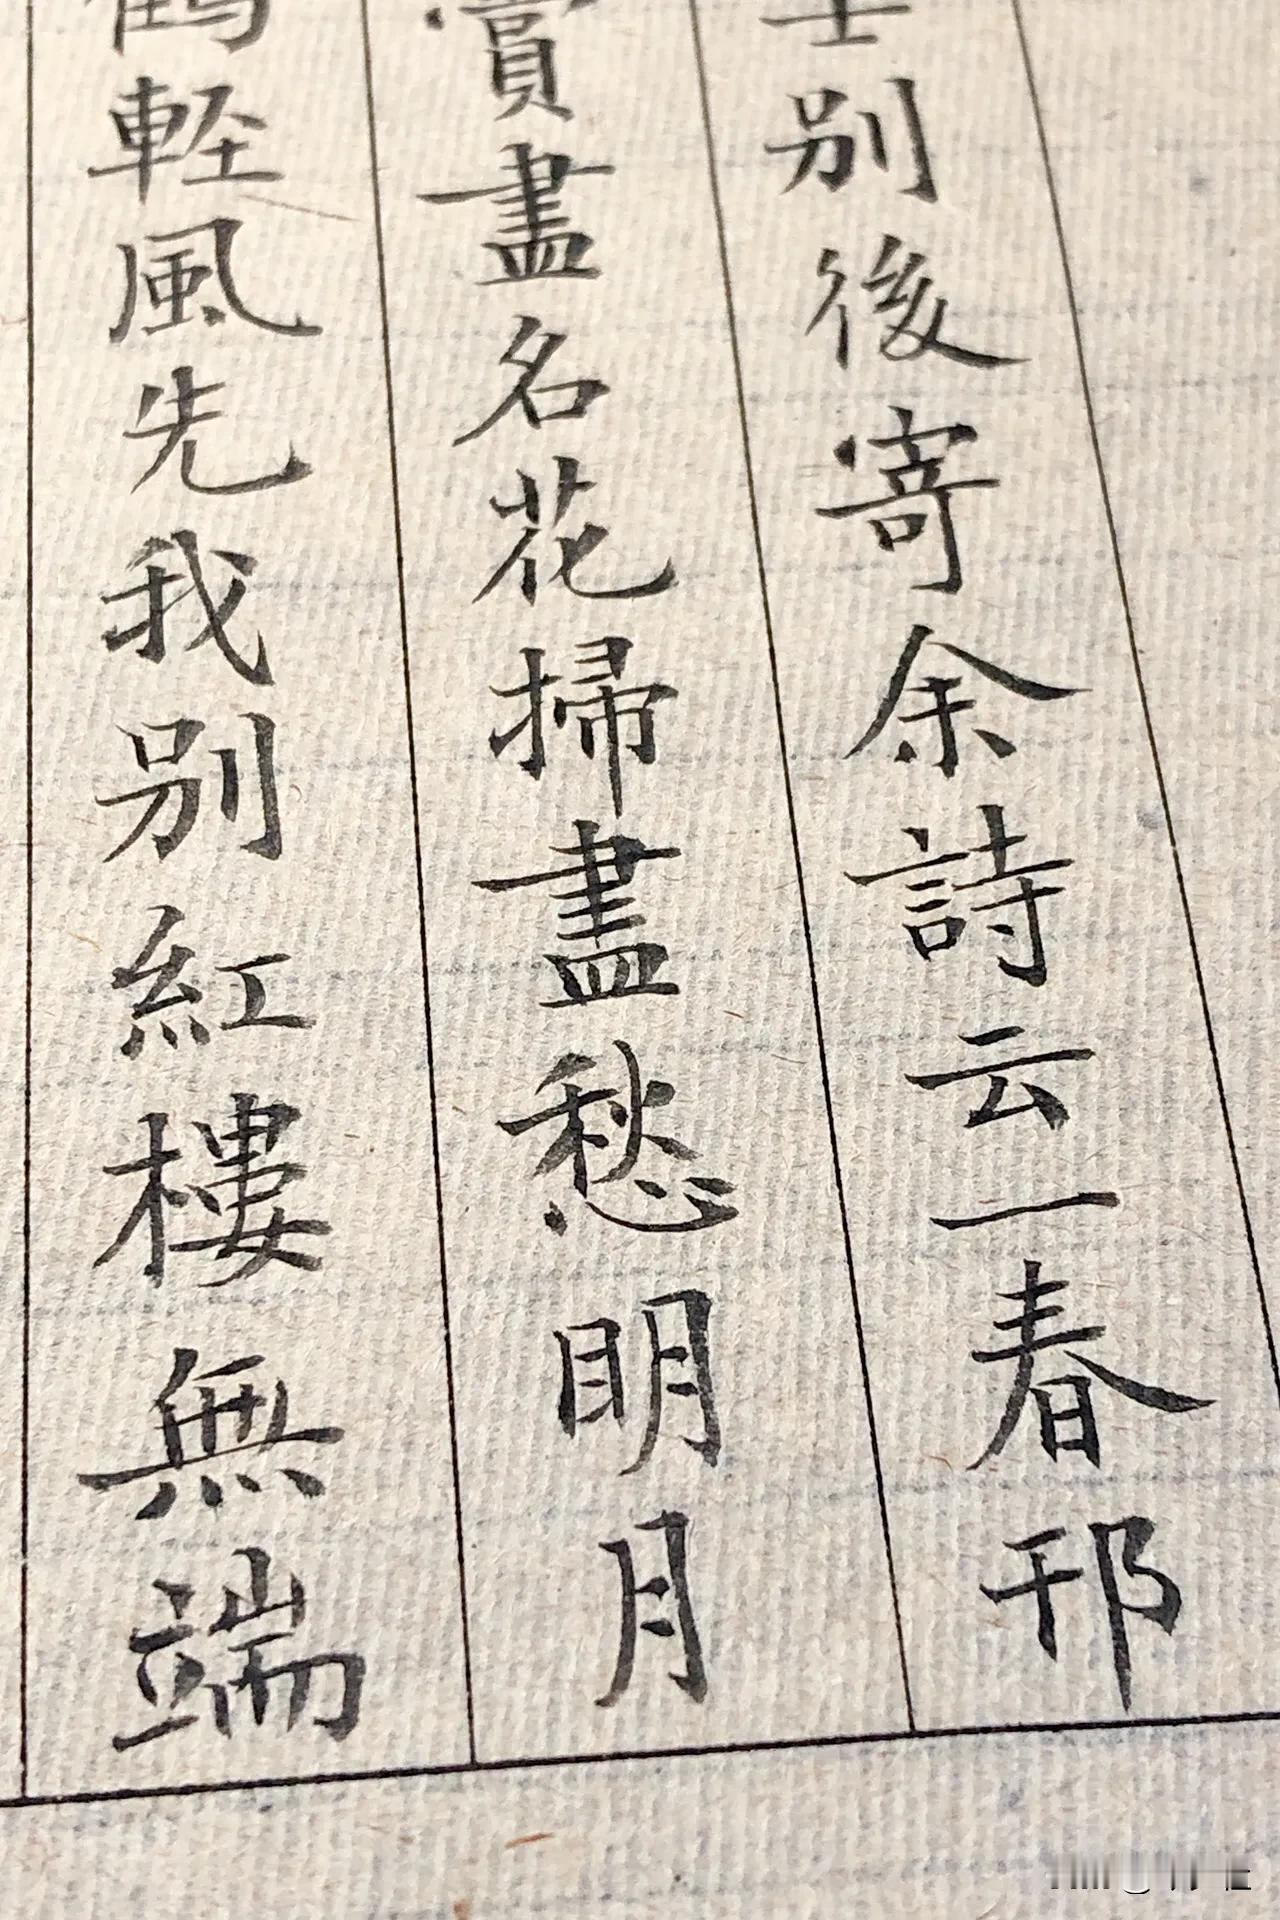 別後寄余詩云一春邗
賞盡名花掃盡愁明月
鶴輕風先我別紅樓無端